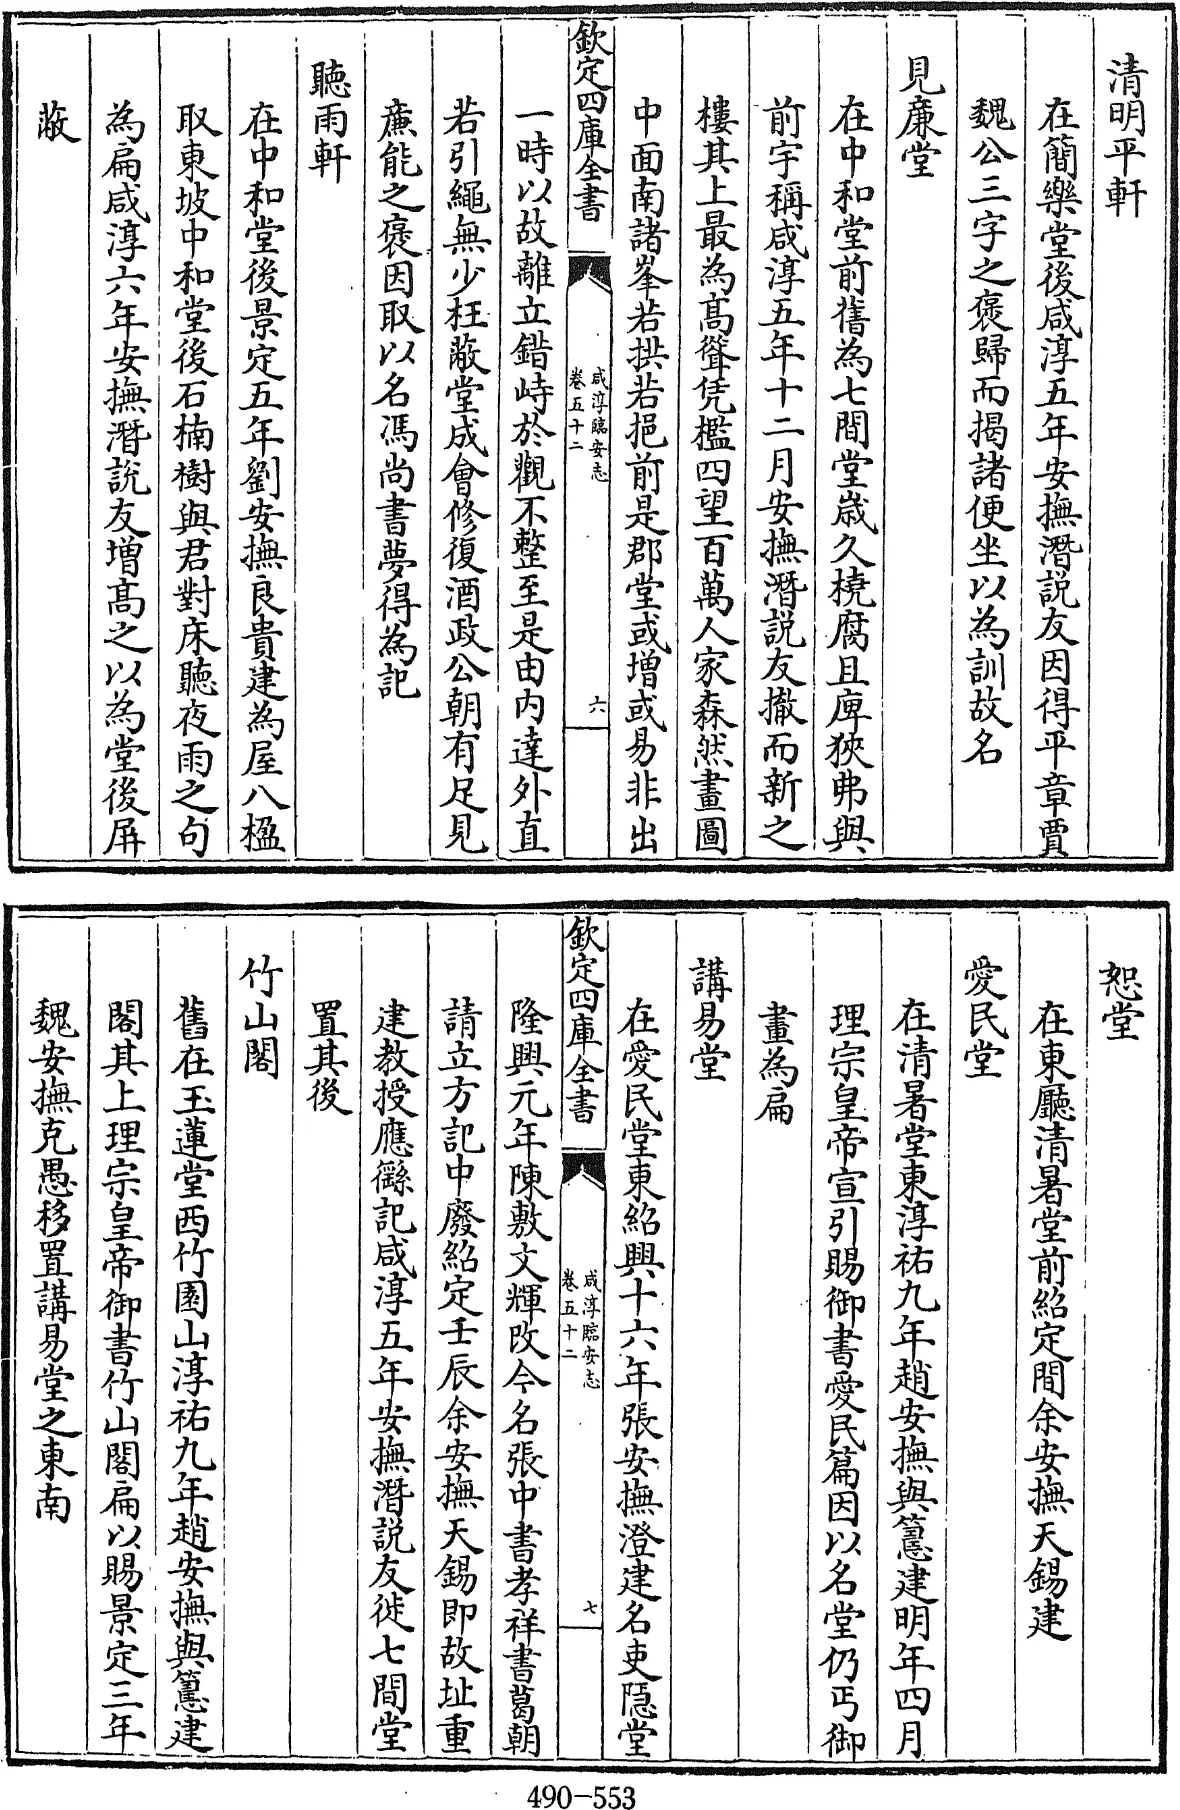 清明平軒
在簡樂堂後咸淳五年安撫潛説友因得平章賈
魏公三字之褒歸而揭諸便坐以為訓故名
見廉堂
在中和堂前舊為七間堂歲久橈腐且庳狹弗與
前宇稱咸淳五年十二月安撫潛説友撤而新之
樓其上最為髙聳凭檻四望百萬人家森然畫圖
中面南諸峯若拱若挹前是郡堂或增或易非出
欽定四庫全書
咸淳臨安志
卷五十二
六
一時以故離立錯峙於觀不整至是由内達外直
若引繩無少枉蔽堂成會修復酒政公朝有足見
亷能之褒因取以名馮尚書夢得為記
聽雨軒
在中和堂後景定五年劉安撫良貴建為屋八楹
取東坡中和堂後石楠樹與君對床聽夜雨之句
為扁咸淳六年安撫潛說友增髙之以為堂後屏
蔽
恕堂
在東廳清暑堂前紹定間余安撫天錫建
愛民堂
在清暑堂東淳祐九年趙安撫與𥲅建明年四月
理宗皇帝宣引賜御書愛民篇因以名堂仍丐御
畫為扁
講易堂
在愛民堂東紹興十六年張安撫澄建名吏隠堂
欽定四庫全書
咸淳臨安志
卷五十二
七
隆興元年陳敷文輝改今名張中書孝祥書葛朝
請立方記中廢紹定壬辰余安撫天錫即故址重
建教授應𦅸記咸淳五年安撫潛説友徙七間堂
置其後
竹山閣
舊在玉蓮堂西竹園山淳祐九年趙安撫與𥲅建
閣其上理宗皇帝御書竹山閣扁以賜景定三年
魏安撫克愚移置講易堂之東南
490-553